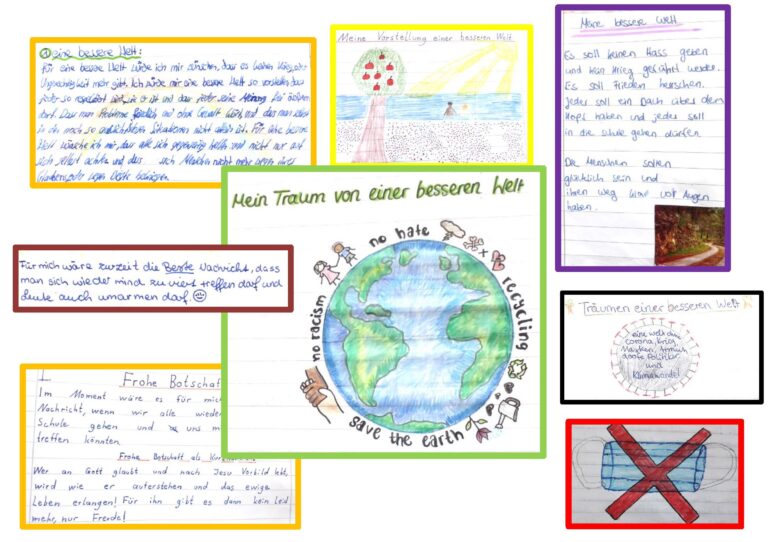 Meine bessere Welt:
Für eine bessere Welt würde ich mir wünschen, dass es keinen Krieg oder
Ungerechtigkeit mehr gibt. Ich würde mir eine bessere Welt so vorstellen, dass
jeder so respektiert wird, wie er ist und dass jeder seine Meinung frei äußern
darf. Dass man Probleme friedlich und ohne Gewalt löst und dass man
in den noch so Situationen nicht allein ist. Für eine bessere
Welt wünsche ich mir, dass alle sich gegenseitig helfen und nicht nur auf
sich selbst achten und dass sich Menschen nicht mehr wegen ihres
Glaubens oder wegen bekriegen.
Meine Vorstellung einer besseren Welt
Meine bessere Welt
Es soll keinen Hass geben
und kein Krieg geführt werden.
Es soll Frieden herrschen.
Jedes soll ein Dach über dem
Kopf haben und jedes soll
in die Schule gehen dürfen.
Die Menschen sollen
glücklich sein und
ihren Weg klar vor Augen
haben.
Mein Traum von einer besseren Welt
no hate
recycling
save the earth
no racism
Für mich wäre zurzeit die Beste Nachricht, dass
man sich wieder mind. zu viert treffen darf und
Leute auch umarmen darf.☺
Träumen einer besseren Welt
eine Welt ohne
corona, Krieg,
Masken, Armut,
doofe Politiker
und
Klimawandel
Frohe Botschaf
Im Moment wäre es für mic
Nachricht, wenn wir alle wieder
Schule gehen und uns m
treffen könnten.
Frohe Botschaft als
Wer an Gott glaubt und nach Jesu Vorbild lebt,
wird wie er auferstehen und das ewige
Leben erlangen! Für ihn gibt es dann kein Leid
mehr, nur Freude!